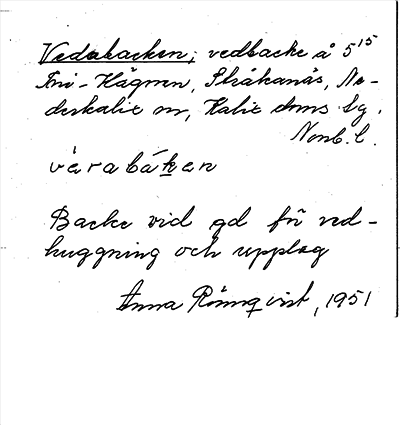 Vedabacken, vedbacke å 5¹⁵
Fri-Hägnen, Stråkanäs, Ne-
derkalix sn, Kalix doms. lg.
Norrb. l.
vèrabáken
Backe vid gd för ved-
huggning och upplag
Anna Rönnqvist, 1951